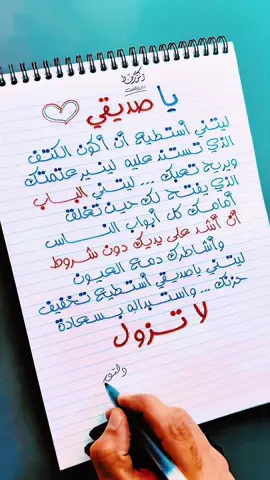 يا صديقي
ليتني أستطيع أن أكون الكتف
الذي تستند عليه لينير عتمتك
ويريح تعبك ... ليتني الباب
الذي يفتح لك حين تغلق
أمامك كل أبواب الناس
أن أشد على يديك دون شروط
وأشاطرك دمعة العيون
ليتني ياصديقي أستطيع تخفيف
حزنك ... واستبداله بسعادة
لا تزول